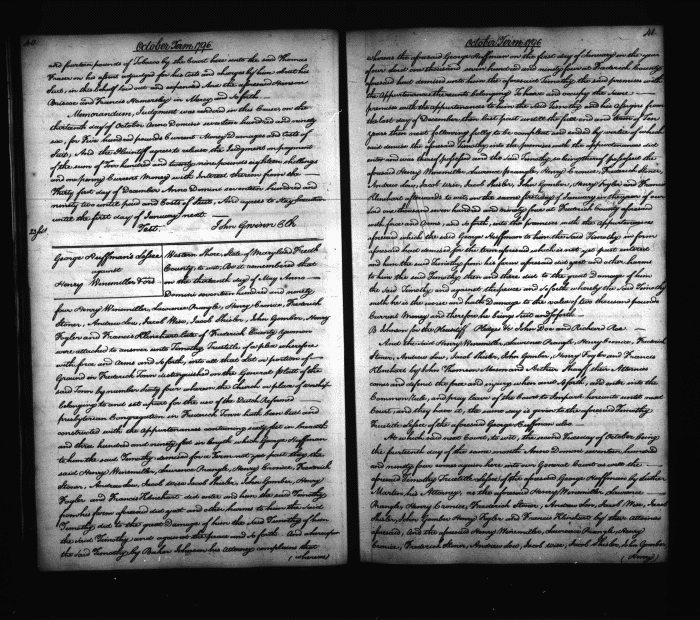 40.
October Term 1796
and fourteen pounds of Tobacco by the Court here unto the said Thomas
Fraser on his assent adjudged for his costs and charges by him about his
Suit, in this behalf laid out and expended And the aforesaid
and Francis Hamersley in Mercy and so forth
Memorandum, Judgment was entered in this Cause on the
thirteenth day of October Anno Domini seventeen hundred and ninety
six, for Five hundred pounds current Money Damages and costs of
Suit, And the Plaintiff agrees to release the Judgment on payment
of the sum of Two hundred and twenty nine pounds eighteen shillings
and one penny Current Money with Interest thereon from the
Thirty first day of December Anno Domini seventeen hundred and
ninety two until paid and Costs of Suit, And agrees to stay Execution
until the first day of January next
Test. John Gwinn Clk
George Hoffman's Lessee
against
Henry Winemiller & Ors
Western Shore, State of Maryland Fredk
County, to wit, Be it remembered that
on the thirteenth day of May Anno
Domini seventeen hundred and ninety
four Henry Winemiller, Lawrence Prangle, Henry Cronice, Frederick
Stoner, Andrew Low, Jacob Wise, Jacob Shisler, John Gomber, Henry
Foyler and Francis Kleinhart late of Frederick County yeomen
were attached to answer unto Timothy Trusttitle of a plea wherefore
with force and Arms and so forth, into all that Lot or portion of
Ground in Frederick Town distinguished on the General plat of the
said Town by number sixty four whereon the Church or place of worship
belonging to and set apart for the use of the Dutch Reformed
presbyterian Congregation in Frederick Town hath been built and
constructed with the appurtenances containing sixty feet in breadth
and three hundred and ninety feet in length which George Hoffman
to him the said Timothy demised for a Term not yet past they the
said Henry Winemiller, Lawrence Prangle, Henry Cronice, Frederick
Stoner, Andrew Low, Jacob Wise Jacob Shisler, John Gomber, Henry
Foyler and Francis Kleinhart did enter and him the said Timothy
from his farm aforesaid did eject and other harms to him the said
Timothy did to the great Damage of him
the said Timothy and against the peace and so forth. And whereupon
the said Timothy by Baker Johnson his Attorney complains that
(whereas
41.
October Term 1796
whereas the aforesaid George Hoffman on the first day of January in the year
of our Lord one thousand seven hundred and ninety four at Frederick County
aforesaid had demised unto him the aforesaid Timothy the said premises with
the appurtenances thereunto belonging To have and occupy the same
premises with the appurtenances to him the said Timothy and his assigns from
the last day of December then last past until the full end and Term of Ten
years then next following fully to be complete and ended by virtue of which
said demise the aforesaid Timothy into the premises with the appurtenances did
enter and was thereof possessed and the said Timothy, so being thereof possessed the
aforesaid Henry Winemiller, Lawrence Prangle, Henry Cronice, Frederick Stoner,
Andrew Low, Jacob Wise, Jacob Shisler, John Gomber, Henry Foyler and Francis
Kleinhart afterwards to wit, on the same first day of January in the year of our
Lord one thousand seven hundred and ninety four at Frederick County aforesaid
with force and Arms, and so forth, into the premises with the appurtenances
aforesaid which the said George Hoffman to him the said Timothy in form
aforesaid had demised for the term aforesaid which is not yet past entered
and him the said Timothy from his farm aforesaid did eject and other harms
to him the said Timothy then and there did to the great Damage of him
the said Timothy and against the peace and so forth whereby the said Timothy
saith he is the worse and hath Damage to the value of two thousand pounds
Current Money and therefore he brings Suit and so forth
B Johnson for the Plaintiff Pledges &c John Doe and Richard Roe
And the said Henry Winemiller, Lawrence Prangle, Henry Cronice, Frederick
Stoner, Andrew Low, Jacob Shisler, John Gomber, Henry Foyler and Francis
Kleinhart by John Thomson Mason and Arthur Shaaff their Attornies
come and defend the force and injury when and so forth, and enter into the
Common Rule, and pray leave of the Court to Imparl hereunto until next
Court, and they have it, the same day is given to the aforesaid Timothy
Trusttitle Lessee of the aforesaid George Hoffman also
At which said next Court, to wit, the second Tuesday of October being
the fourteenth day of the same month Anno Domini seventeen hundred
and ninety four comes again here into our General Court as well the
aforesaid Timothy Trusttitle Lessee of the aforesaid George Hoffman by Luther
Martin his Attorney, as the aforesaid Henry Winemiller, Lawrence
Prangle, Henry Cronice, Frederick Stoner, Andrew Low, Jacob Wise, Jacob
Shisler, John Gomber Henry Foyler and Francis Kleinhart by their attornies
aforesaid, and the aforesaid Henry Winemiller, Lawrence Prangle, Henry
Cronice, Frederick Stoner, Andrew Low, Jacob Wise, Jacob Shisler, John Gomber,
(Henry)